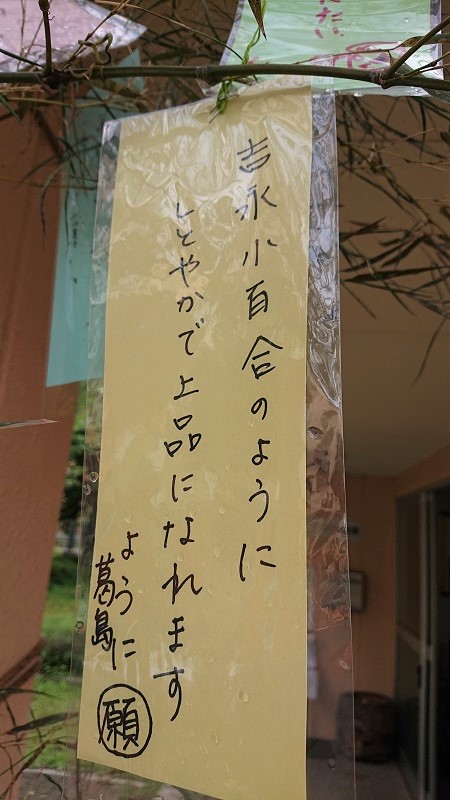 吉永小百合のように
しとやかで上品になれます
ように
葛島
願
たい